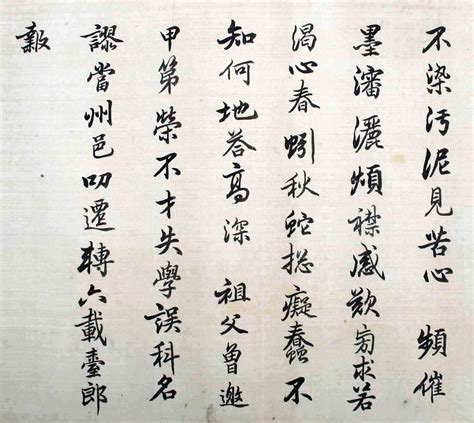 不染污泥見苦心 頻催
墨瀋灑煩襟感歎匃求若
渴心春蚓秋蛇揔癡蠢不
知何地荅高深 祖父曾邀
甲第榮不才失學誤科名
謬當州邑叨遷轉六載臺郎
報